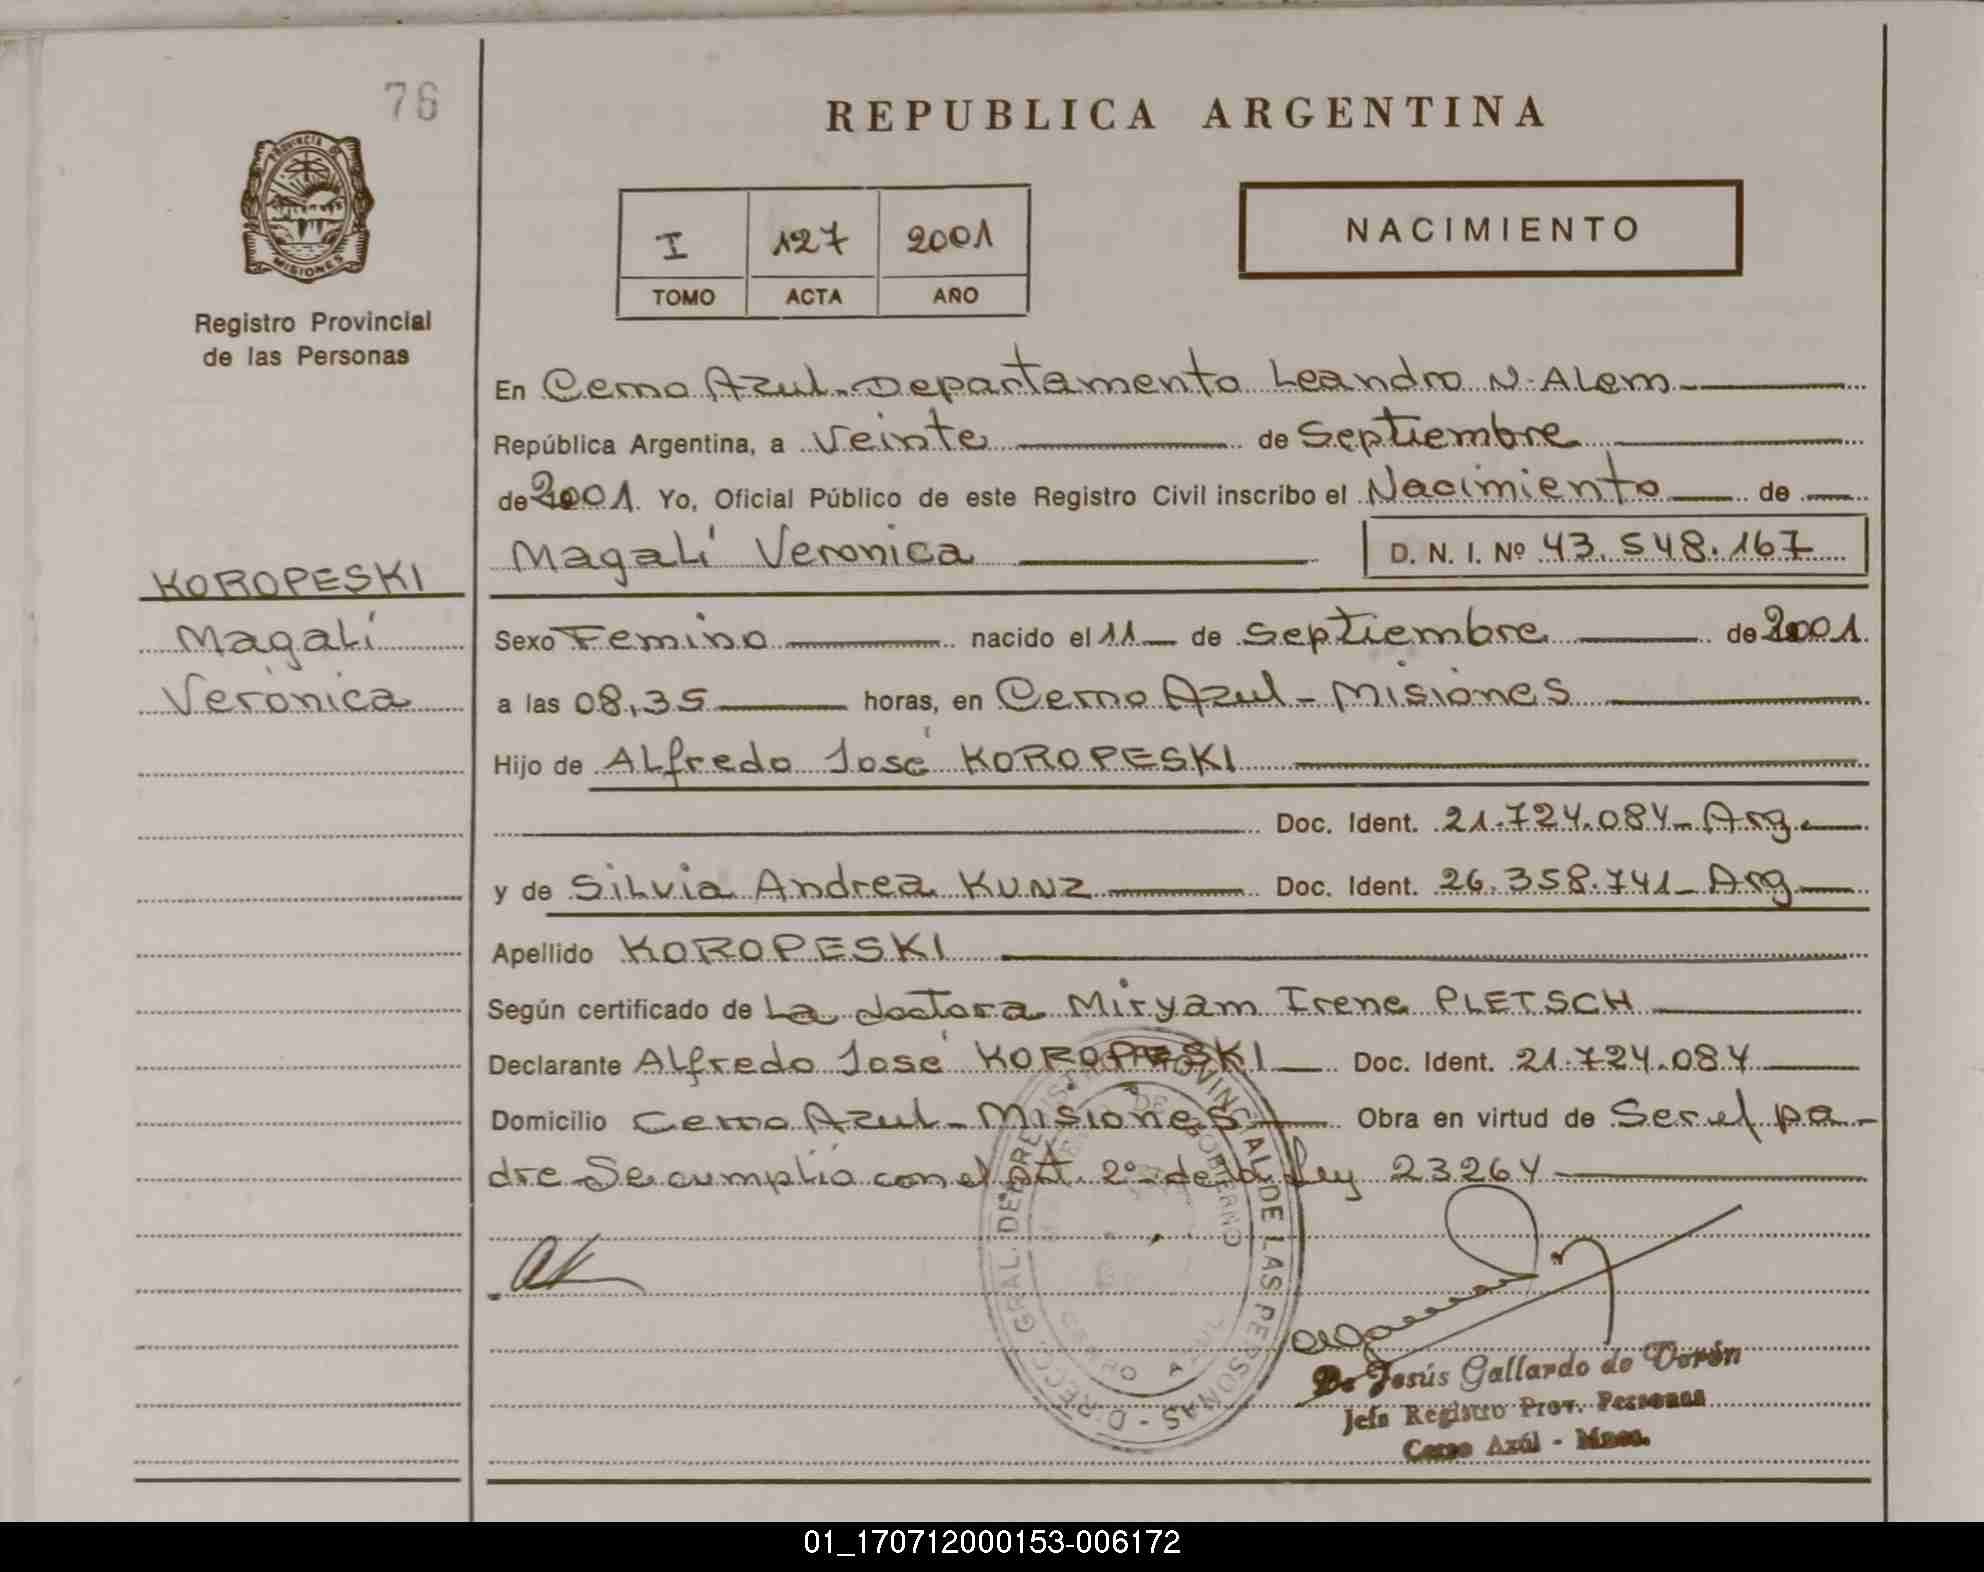 76
REPUBLICA ARGENTINA
PROVINCIA DE
MISIONES
Registro Provincial
de las Personas
I 127 2001
TOMO ACTA AÑO
NACIMIENTO
En Cerro Azul - Departamento Leandro N. Alem
República Argentina, a Veinte de Septiembre
de 2001. Yo, Oficial Público de este Registro Civil inscribo el Nacimiento de
Magalí Veronica D. N. I. Nº 43.548.167
KOROPESKI
Magalí
Verónica
Sexo Femino nacido el 11 de Septiembre de 2001
a las 08,35 horas, en Cerro Azul - Misiones
Hijo de Alfredo José KOROPESKI
Doc. Ident. 21.724.084 - Arg.
y de Silvia Andrea KUNZ Doc. Ident. 26.358.741 - Arg
Apellido KOROPESKI
Según certificado de La doctora Miryam Irene PLETSCH
Declarante Alfredo José KOROPESKI Doc. Ident. 21.724.084
Domicilio Cerro Azul - Misiones Obra en virtud de Ser el pa-
dre - Se cumplió con el Art. 2º de la Ley 23264
DIRECC. GRAL. DEL REGISTRO PROVINCIAL DE LAS PERSONAS
CERRO AZUL
De Jesús Gallardo de Verón
Jefa Registro Prov. Personas
Cerro Azúl - Mnes.
01_170712000153-006172